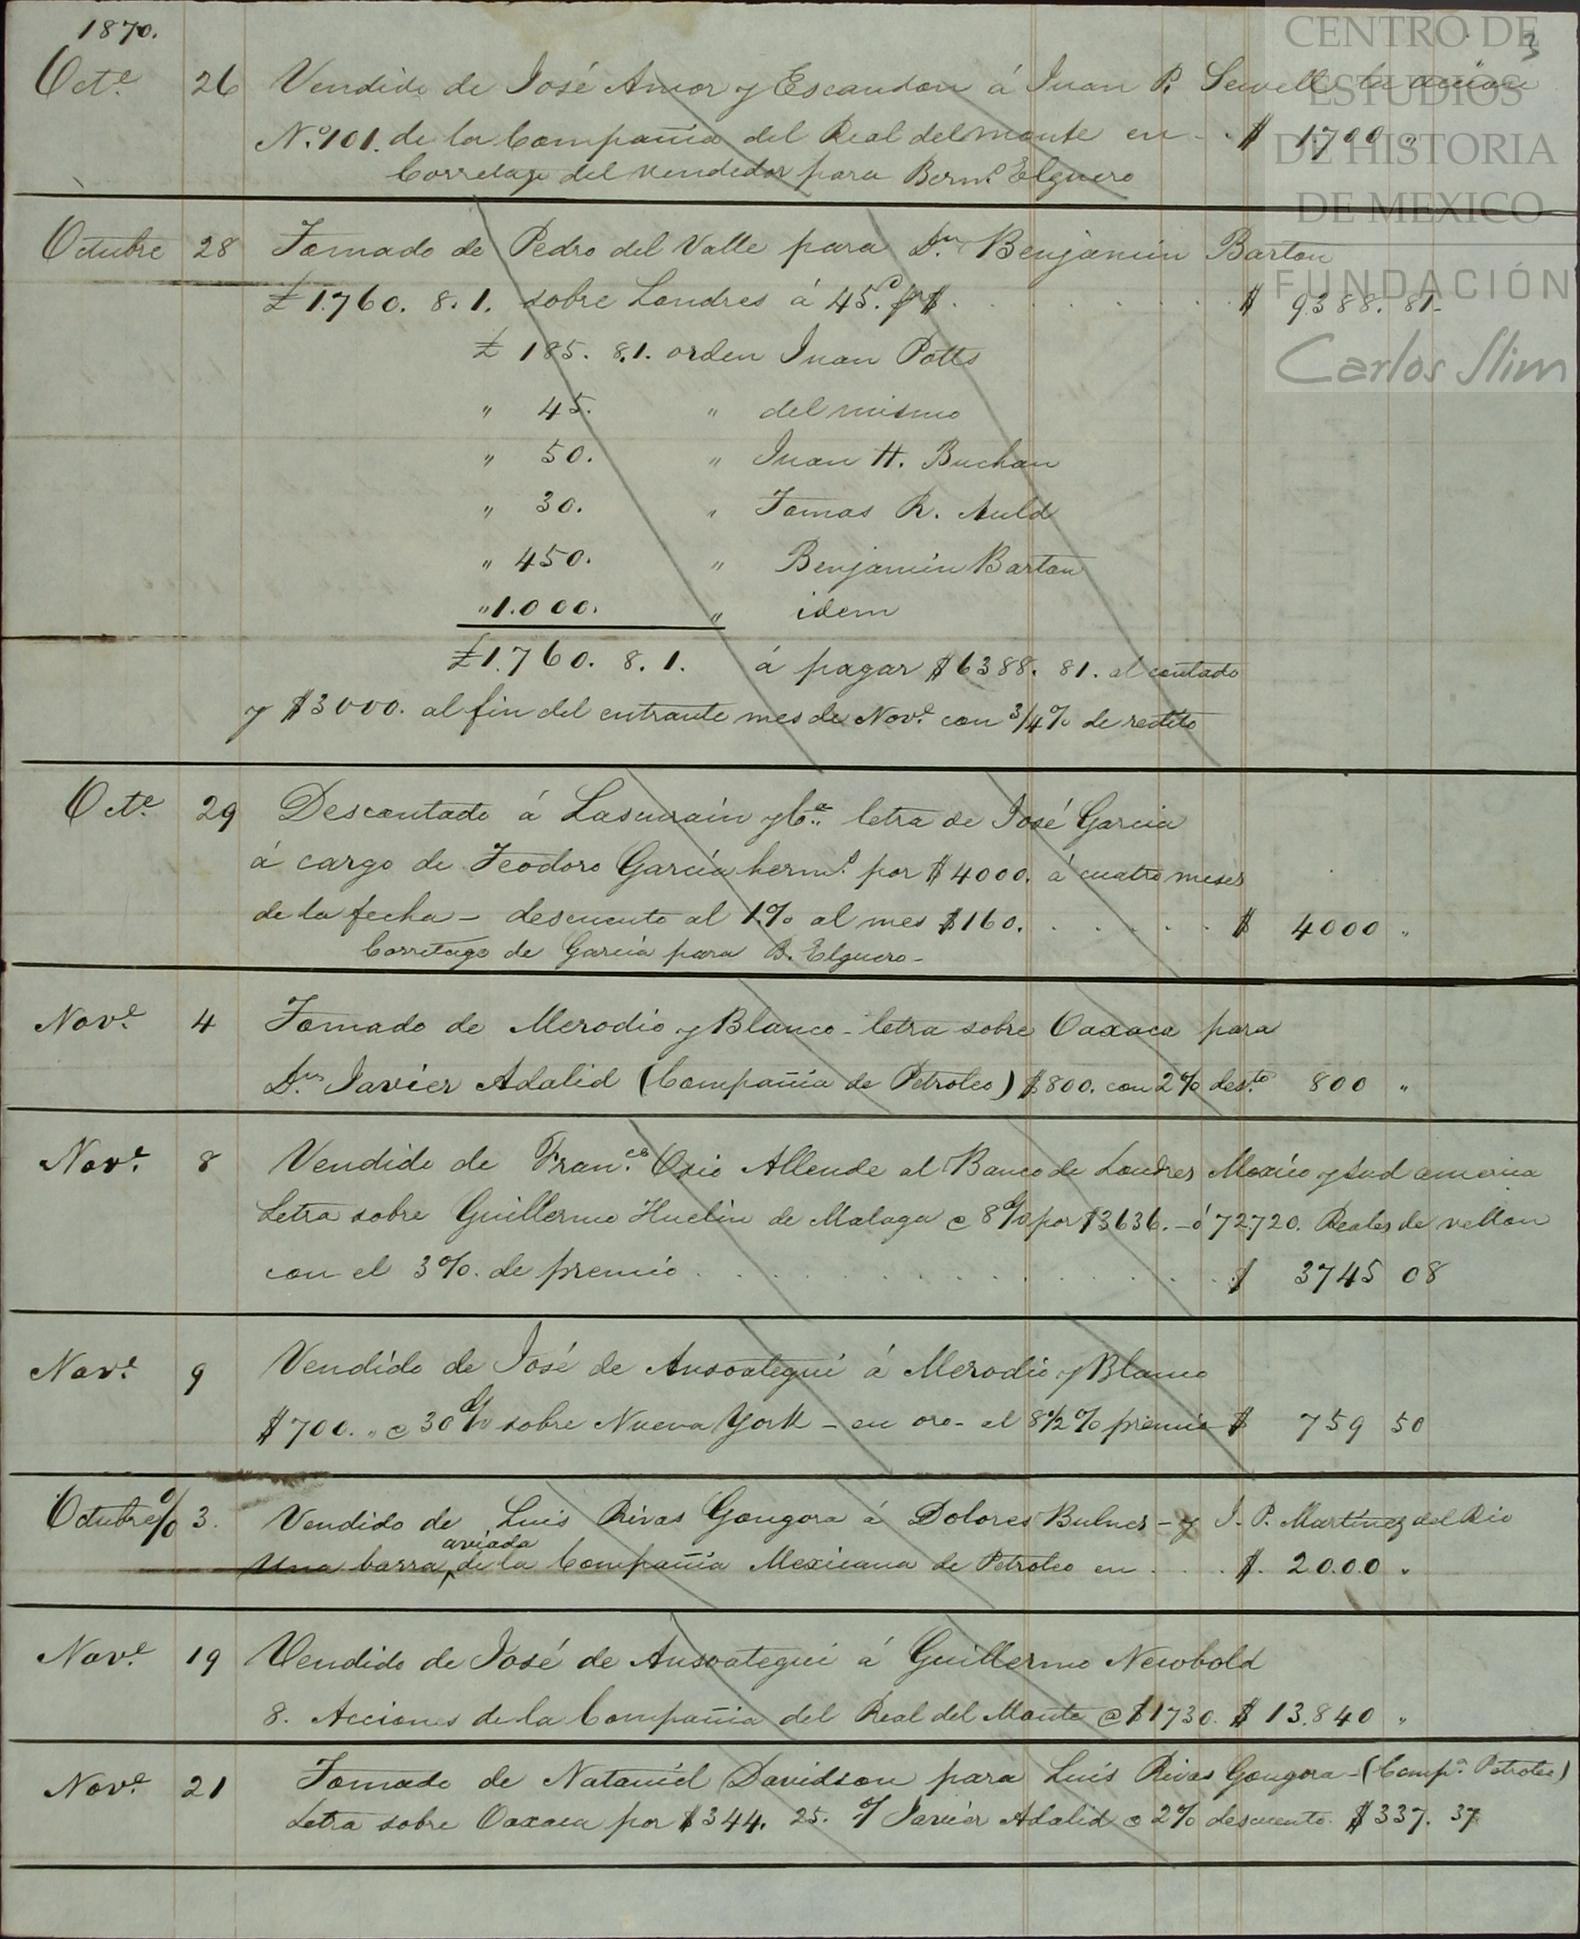 1870.
3
Octe. 26 Vendido de José Amor y Escandon á Juan P. Sewell la accion
No. 101. de la Compañia del Real del monte en - . $ 1700 "
Corretage del vendedor para Bermo. Elguero
Octubre 28 Tomado de Pedro del Valle para Dn. Benjamin Barton
£ 1.760. 8. 1. sobre Londres á 45d. p $ . . . . . . . . $ 9388. 81-
£ 185. 8.1. orden Juan Potts
" 45. " del mismo
" 50. " Juan H. Buchan
" 30. " Tomas R. Auld
" 450. " Benjamin Barton
" 1.000. " idem
£1.760. 8. 1. á pagar $6388. 81. al contado
y $3000. al fin del entrante mes de Nove. con 3/4% de redito
Octe. 29 Descontado á Lascurain y Ca. letra de José Garcia
á cargo de Teodoro García hermo. por $4000. á cuatro meses
de la fecha - descuento al 1% al mes $160. . . . . . . $ 4000 "
Corretage de Garcia para B. Elguero-
Nove. 4 Tomado de Merodio y Blanco - letra sobre Oaxaca para
Dn. Javier Adalid (Compañia de Petroleo) $800. con 2% desto. 800 "
Nove. 8 Vendido de Franco. Osio Allende al Banco de Londres Mexico y Sud america
Letra sobre Guillermo Huelin de Malaga @ 8 d/v por $3636. - ó 72,720. Reales de vellon
con el 3%. de premio . . . . . . . . . . . . $ 3745 08
Nove. 9 Vendido de José de Ansoategui á Merodio y Blanco
$700. " @ 30 d/v sobre Nueva York - en oro - al 8 1/2 % premio $ 759 50
Octubre 3. Vendido de Luis Rivas Gongora á Dolores Bulnes - y J. P. Martínez del Rio
aviada
Una barra, de la Compañía Mexicana de Petroleo en . . . $. 2000 "
Nove. 19 Vendido de José de Ansoategui á Guillermo Newbold
8. Acciones de la Compañia del Real del Monte @ $1730. $ 13.840 "
Nove. 21 Tomado de Nataniel Davidson para Luis Rivas Gongora - (Compa. Petroleo)
Letra sobre Oaxaca por $344. 25. Javier Adalid @ 2% descuento. $337. 37
CENTRO DE
ESTUDIOS
DE HISTORIA
DE MEXICO
FUNDACIÓN
Carlos Slim